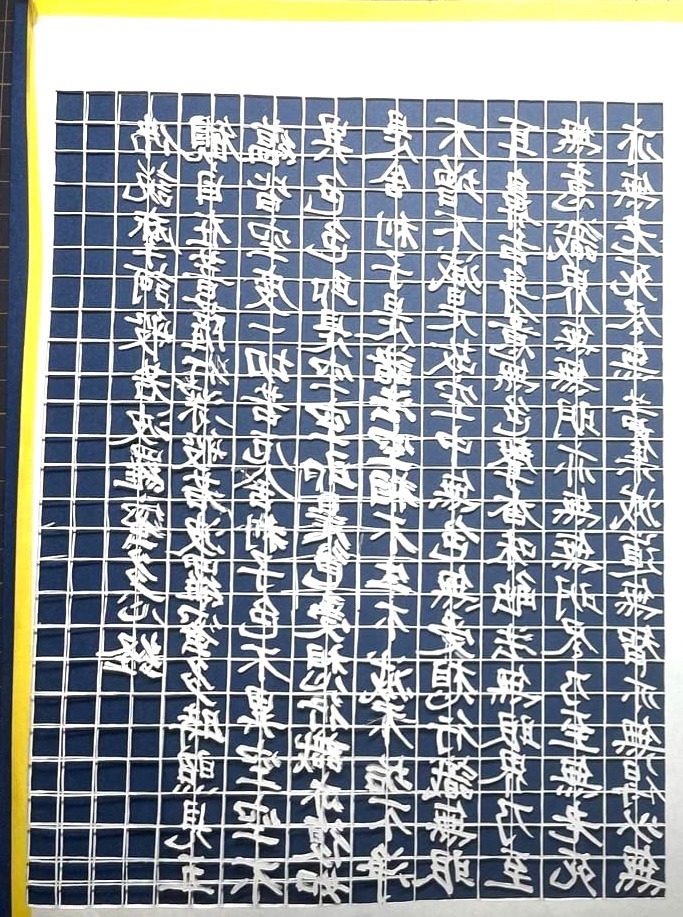 佛説摩訶般若波羅蜜多心経
観自在菩薩行深般若波羅蜜多時照見五
蘊皆空度一切苦厄舎利子色不異空空不
異色色即是空空即是色受想行識亦復如
是舎利子是諸法空相不生不滅不垢不浄
不増不減是故空中無色無受想行識無眼
耳鼻舌身意無色聲香味觸法無眼界乃至
無意識界無無明亦無無明尽乃至無老死
亦無老死尽無苦集滅道無智亦無得以無